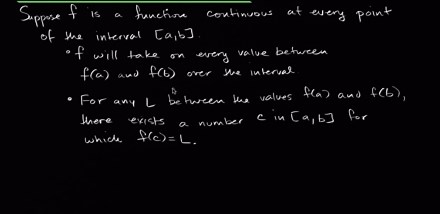 Suppose f is a function continuous at every point
of the interval [a,b].
• f will take on every value between
f(a) and f(b) over the interval.
• For any L between the values f(a) and f(b),
there exists a number c in [a,b] for
which f(c)=L.